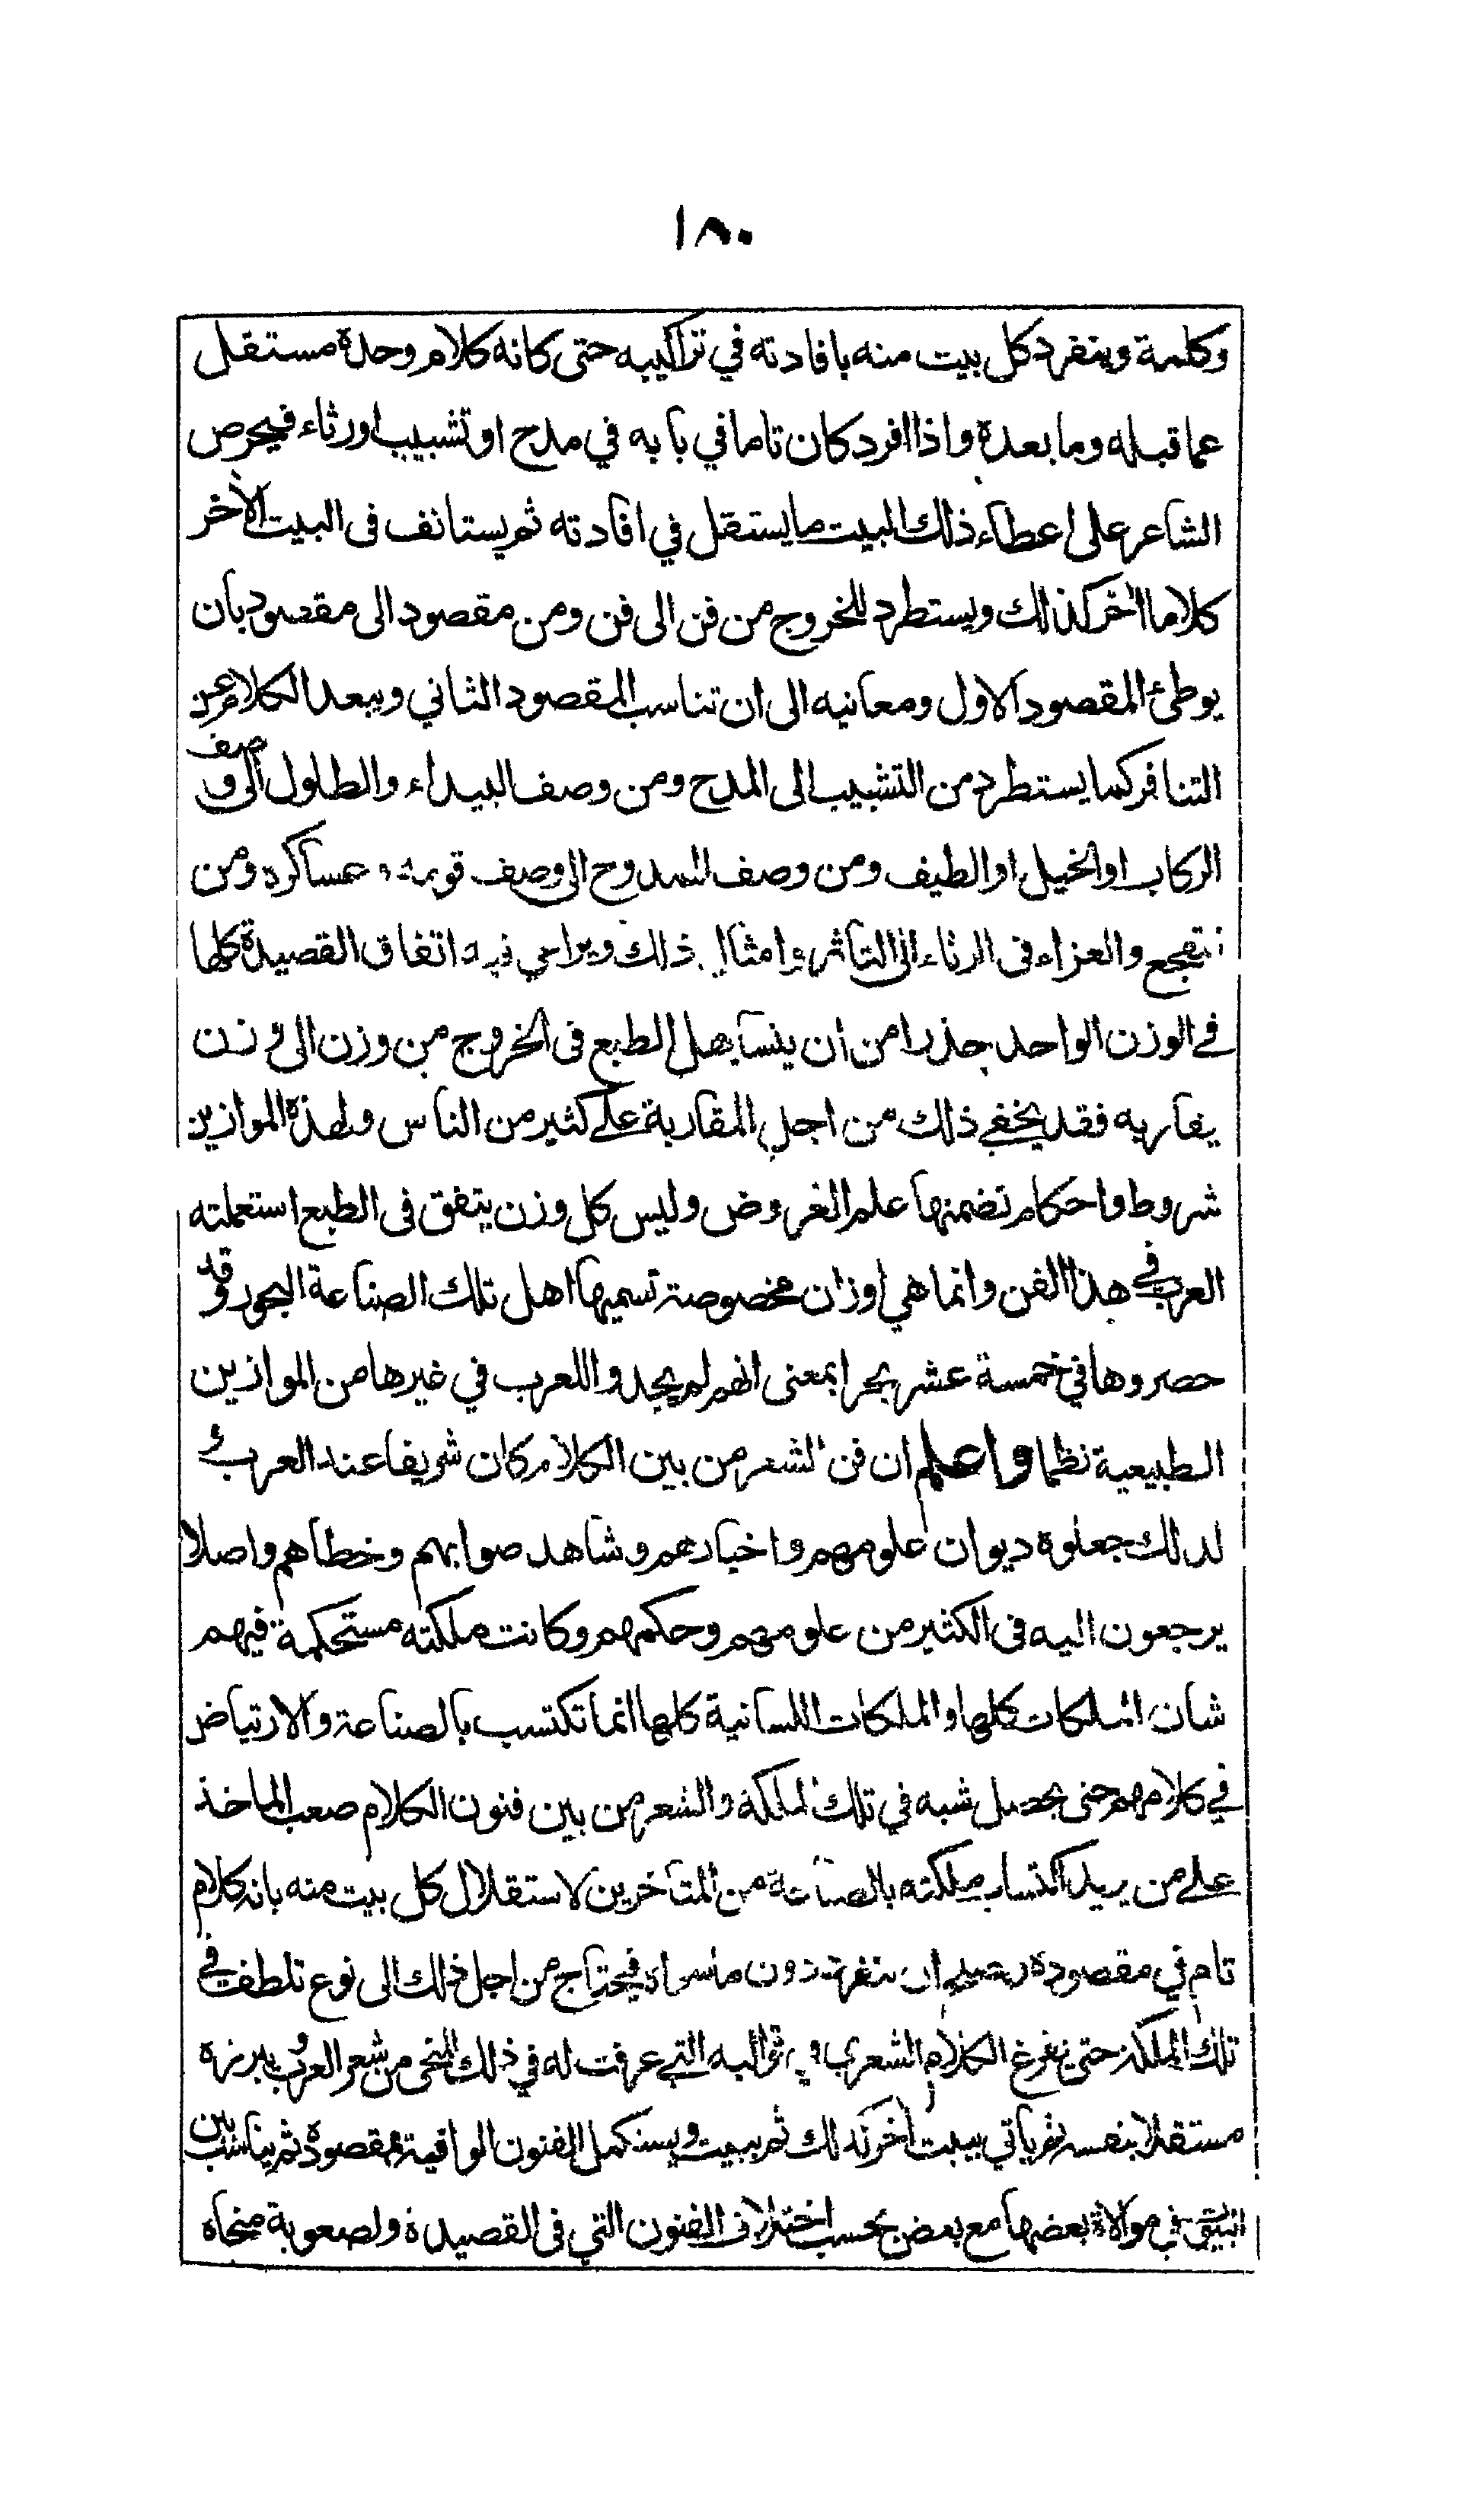 ١٨٠
وكلمة وينفرد كل بيت منه بافادته في تراكيبه حتى كانه كلام وحده مستقل
عما قبله وما بعده واذا افرد كان تاما في بابه في مدح او تشبيب او رثاء فيحرص
الشاعر على اعطاء ذلك البيت ما يستقل في افادته ثم يستانف فى البيت الآخر
كلاما اخر كذلك ويستطرد للخروج من فن الى فن ومن مقصود الى مقصود بان
يوطئ المقصود الاول ومعانيه الى ان تناسب المقصود الثاني ويبعد الكلام عن
التنافر كما يستطرد من التشبيب الى المدح ومن وصف البيداء والطلول الى وصف
الركاب او الخيل او الطيف ومن وصف الممدوح الى وصف قومه وعساكره ومن
التفجع والعزاء فى الرثاء الى التاثر وامثال ذلك ويراعي فيه اتفاق القصيدة كلها
في الوزن الواحد حذرا من ان يتساهل الطبع فى الخروج من وزن الى وزن
يقاربه فقد يخفى ذلك من اجل المقاربة على كثير من الناس ولهذه الموازين
شروط واحكام تضمنها علم العروض وليس كل وزن يتفق فى الطبع استعملته
العرب في هذا الفن وانما هي اوزان مخصوصة تسميها اهل تلك الصناعة البحور وقد
حصروها في خمسة عشر بحرا بمعنى انهم لم يجدوا للعرب في غيرها من الموازين
الطبيعية نظما واعلم ان فن الشعر من بين الكلام كان شريفا عند العرب و
لذلك جعلوه ديوان علومهم واخبارهم وشاهد صوابهم وخطاهم واصلا
يرجعون اليه فى الكثير من علومهم وحكمهم وكانت ملكته مستحكمة فيهم
شان الملكات كلها والملكات اللسانية كلها انما تكتسب بالصناعة والارتياض
في كلامهم حتى يحصل شبه في تلك الملكة والشعر من بين فنون الكلام صعب الماخذ
على من يريد اكتساب ملكته بالصناعة من المتاخرين لاستقلال كل بيت منه بانه كلام
تام في مقصوده ويصلح ان ينفرد دون ماسواه فيحتاج من اجل ذلك الى نوع تلطف في
تلك الملكة حتى يفرغ الكلام الشعري في قوالبه التي عرفت له في ذلك المنحى من شعر العرب ويبرزه
مستقلا بنفسه ثم ياتي ببيت اخر كذلك ثم ببيت ويستكمل الفنون الوافية بمقصوده ثم يناسب بين
البيوت في موالاة بعضها مع بعض بحسب اختلاف الفنون التي فى القصيدة ولصعوبة منحاه